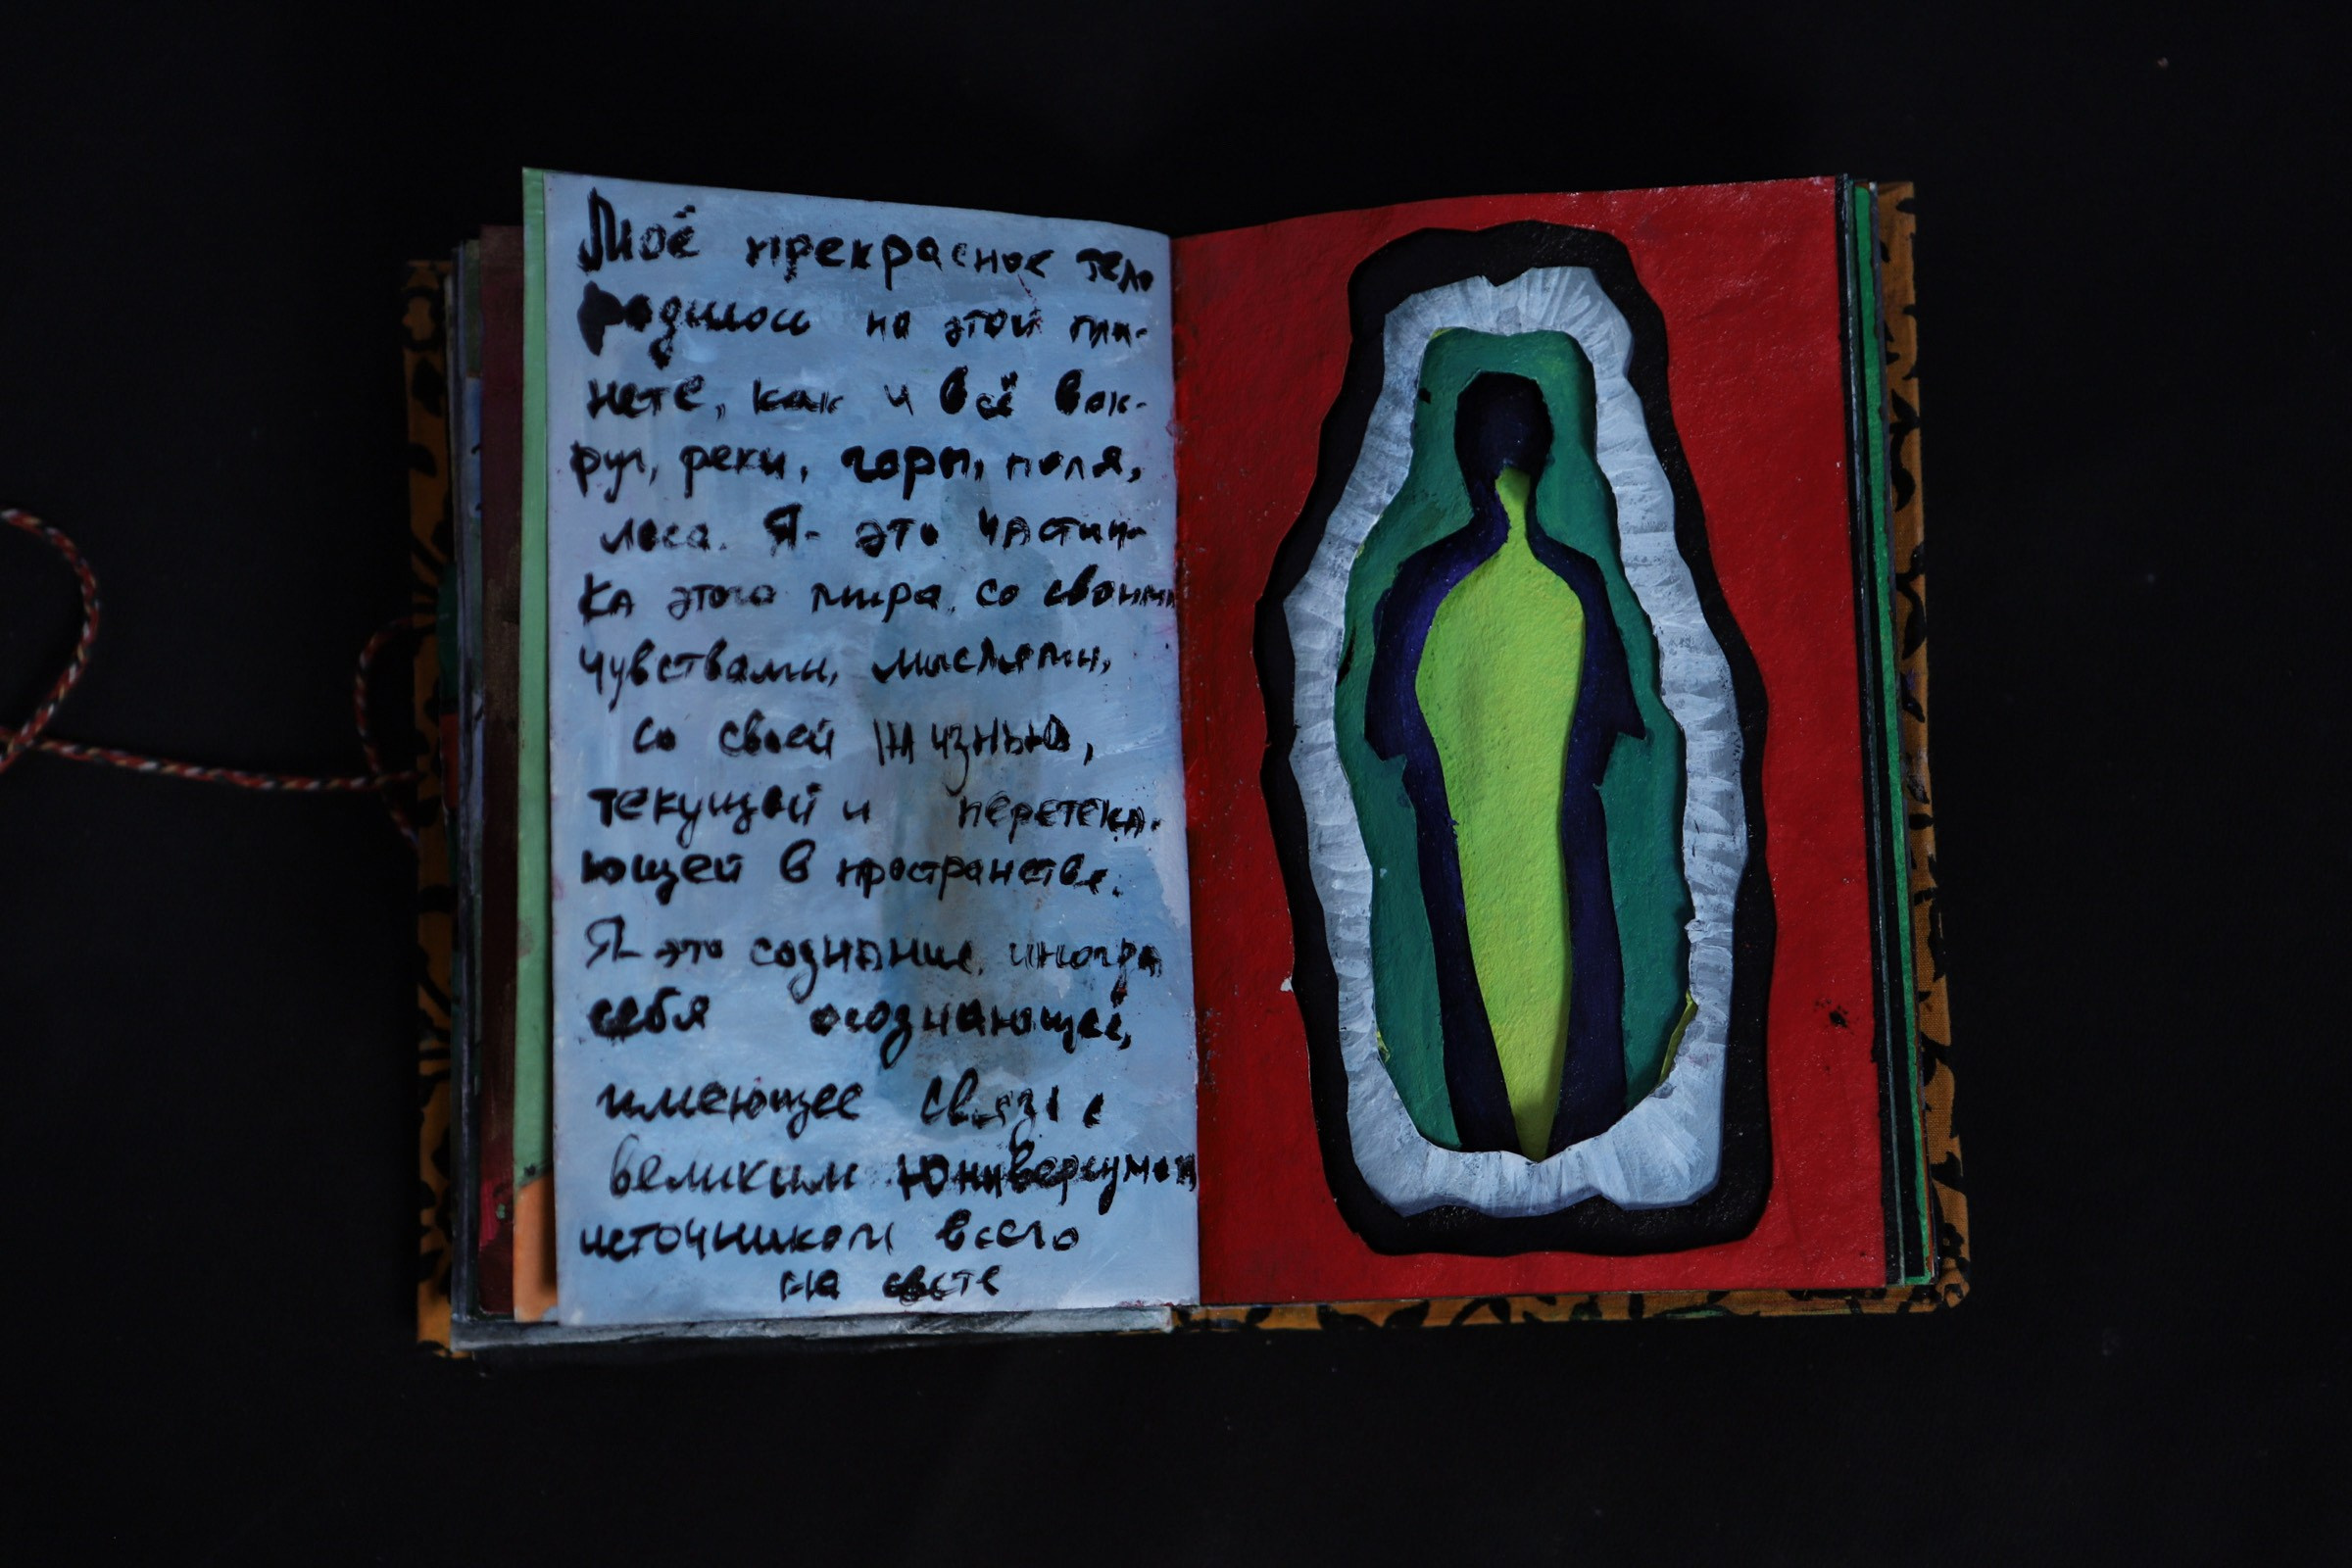 Моё прекрасное тело
родилось на этой пла-
нете, как и всё вок-
руг, реки, горы, поля,
леса. Я - это частич-
ка этого мира, со своими
чувствами, мыслями,
со своей жизнью,
текущей и перетека-
ющей в пространстве.
Я - это сознание, иногда
себя осознающее,
имеющее связь с
великим Юниверсумом
источником всего
на свете